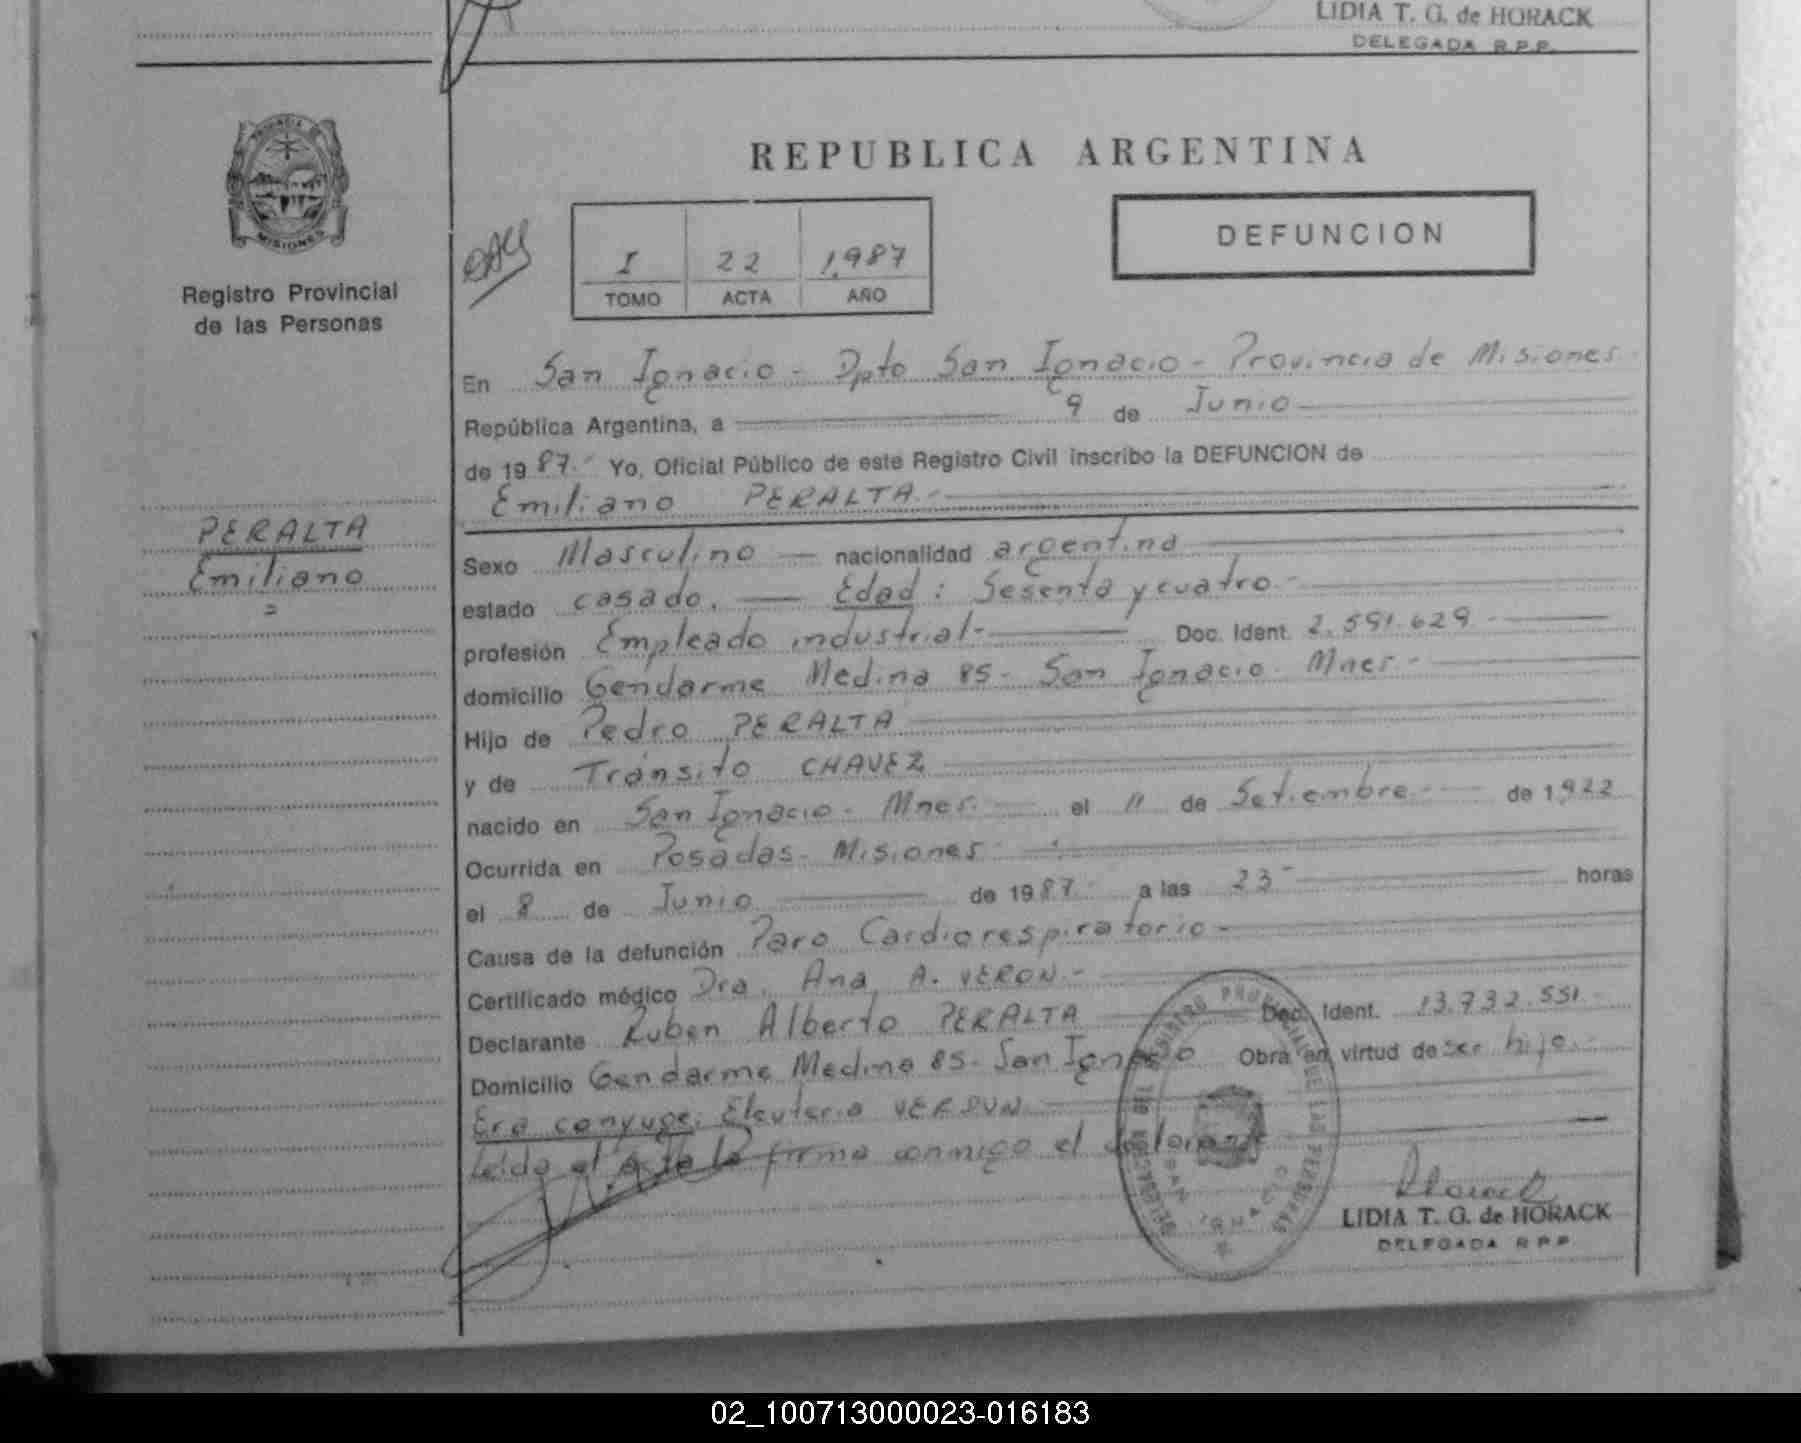 LIDIA T. G. de HORACK
DELEGADA R.P.P.
PROVINCIA DE
MISIONES
Registro Provincial
de las Personas
REPUBLICA ARGENTINA
DEFUNCION
I 22 1.987
TOMO ACTA AÑO
En San Ignacio - Dpto San Ignacio - Provincia de Misiones
República Argentina, a 9 de Junio
de 1987.- Yo, Oficial Público de este Registro Civil inscribo la DEFUNCION de
Emiliano PERALTA.-
PERALTA
Emiliano
Sexo Masculino — nacionalidad argentina
estado casado. — Edad: Sesenta y cuatro.-
profesión Empleado industrial.- Doc. Ident. 2.591.629.-
domicilio Gendarme Medina 85 - San Ignacio. Mnes.-
Hijo de Pedro PERALTA
y de Tránsito CHAVEZ
nacido en San Ignacio - Mnes. — el 11 de Setiembre.- de 1922
Ocurrida en Posadas - Misiones
el 8 de Junio de 1987.- a las 23- horas
Causa de la defunción Paro Cardiorespiratorio -
Certificado médico Dra. Ana A. VERON.-
Declarante Ruben Alberto PERALTA Doc. Ident. 13.732.551.-
Domicilio Gendarme Medina 85 - San Ignacio Obra en virtud de ser hijo.-
Era conyuge: Eleuteria
leída el Acta la firma conmigo el declarante
LIDIA T. G. de HORACK
DELEGADA R.P.P.
02_100713000023-016183